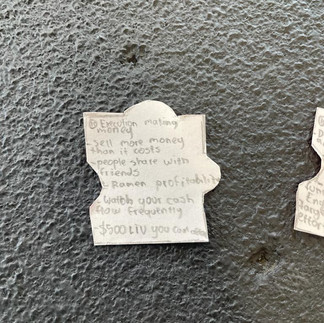 Execution making
money
- sell more money
than it costs
- people share with
friends
↳ Ramen profitability
- Watch your cash
flow frequently
$500 LTV you can